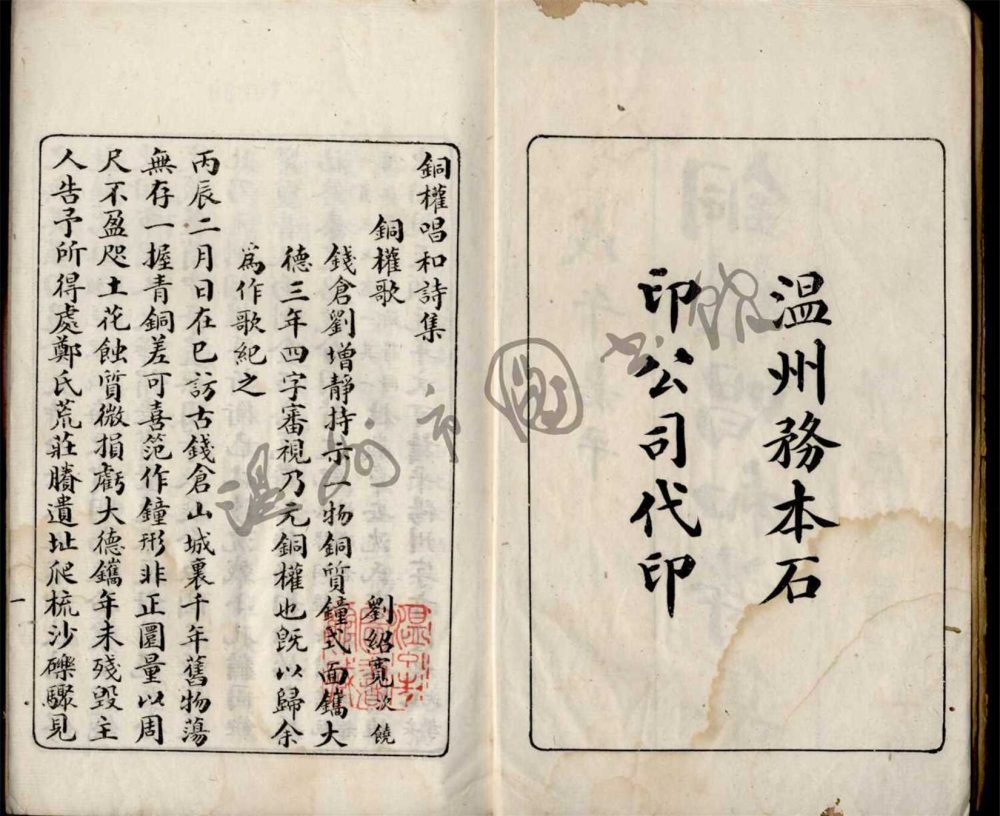 温州務本石
印公司代印
銅權唱和詩集
銅權歌 劉紹寬次饒
錢倉劉增靜持示一物銅質鐘式面鐫大
德三年四字審視乃元銅權也既以歸余
爲作歌紀之
丙辰二月日在巳訪古錢倉山城裏千年舊物蕩
無存一握青銅差可喜范作鐘形非正圜量以周
尺不盈咫土花蝕質微損虧大德鐫年未殘毀主
人告予所得處鄭氏荒莊賸遺址爬梳沙礫驟見
一
温州市圖書館